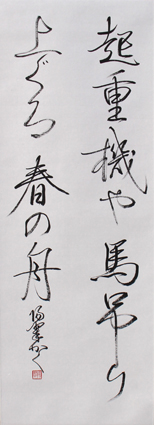 起重機や馬吊り
上ぐる春の舟